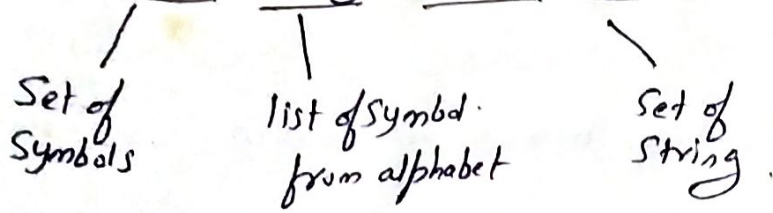 Set of
Symbols
list of symbol.
from alphabet
Set of
String.